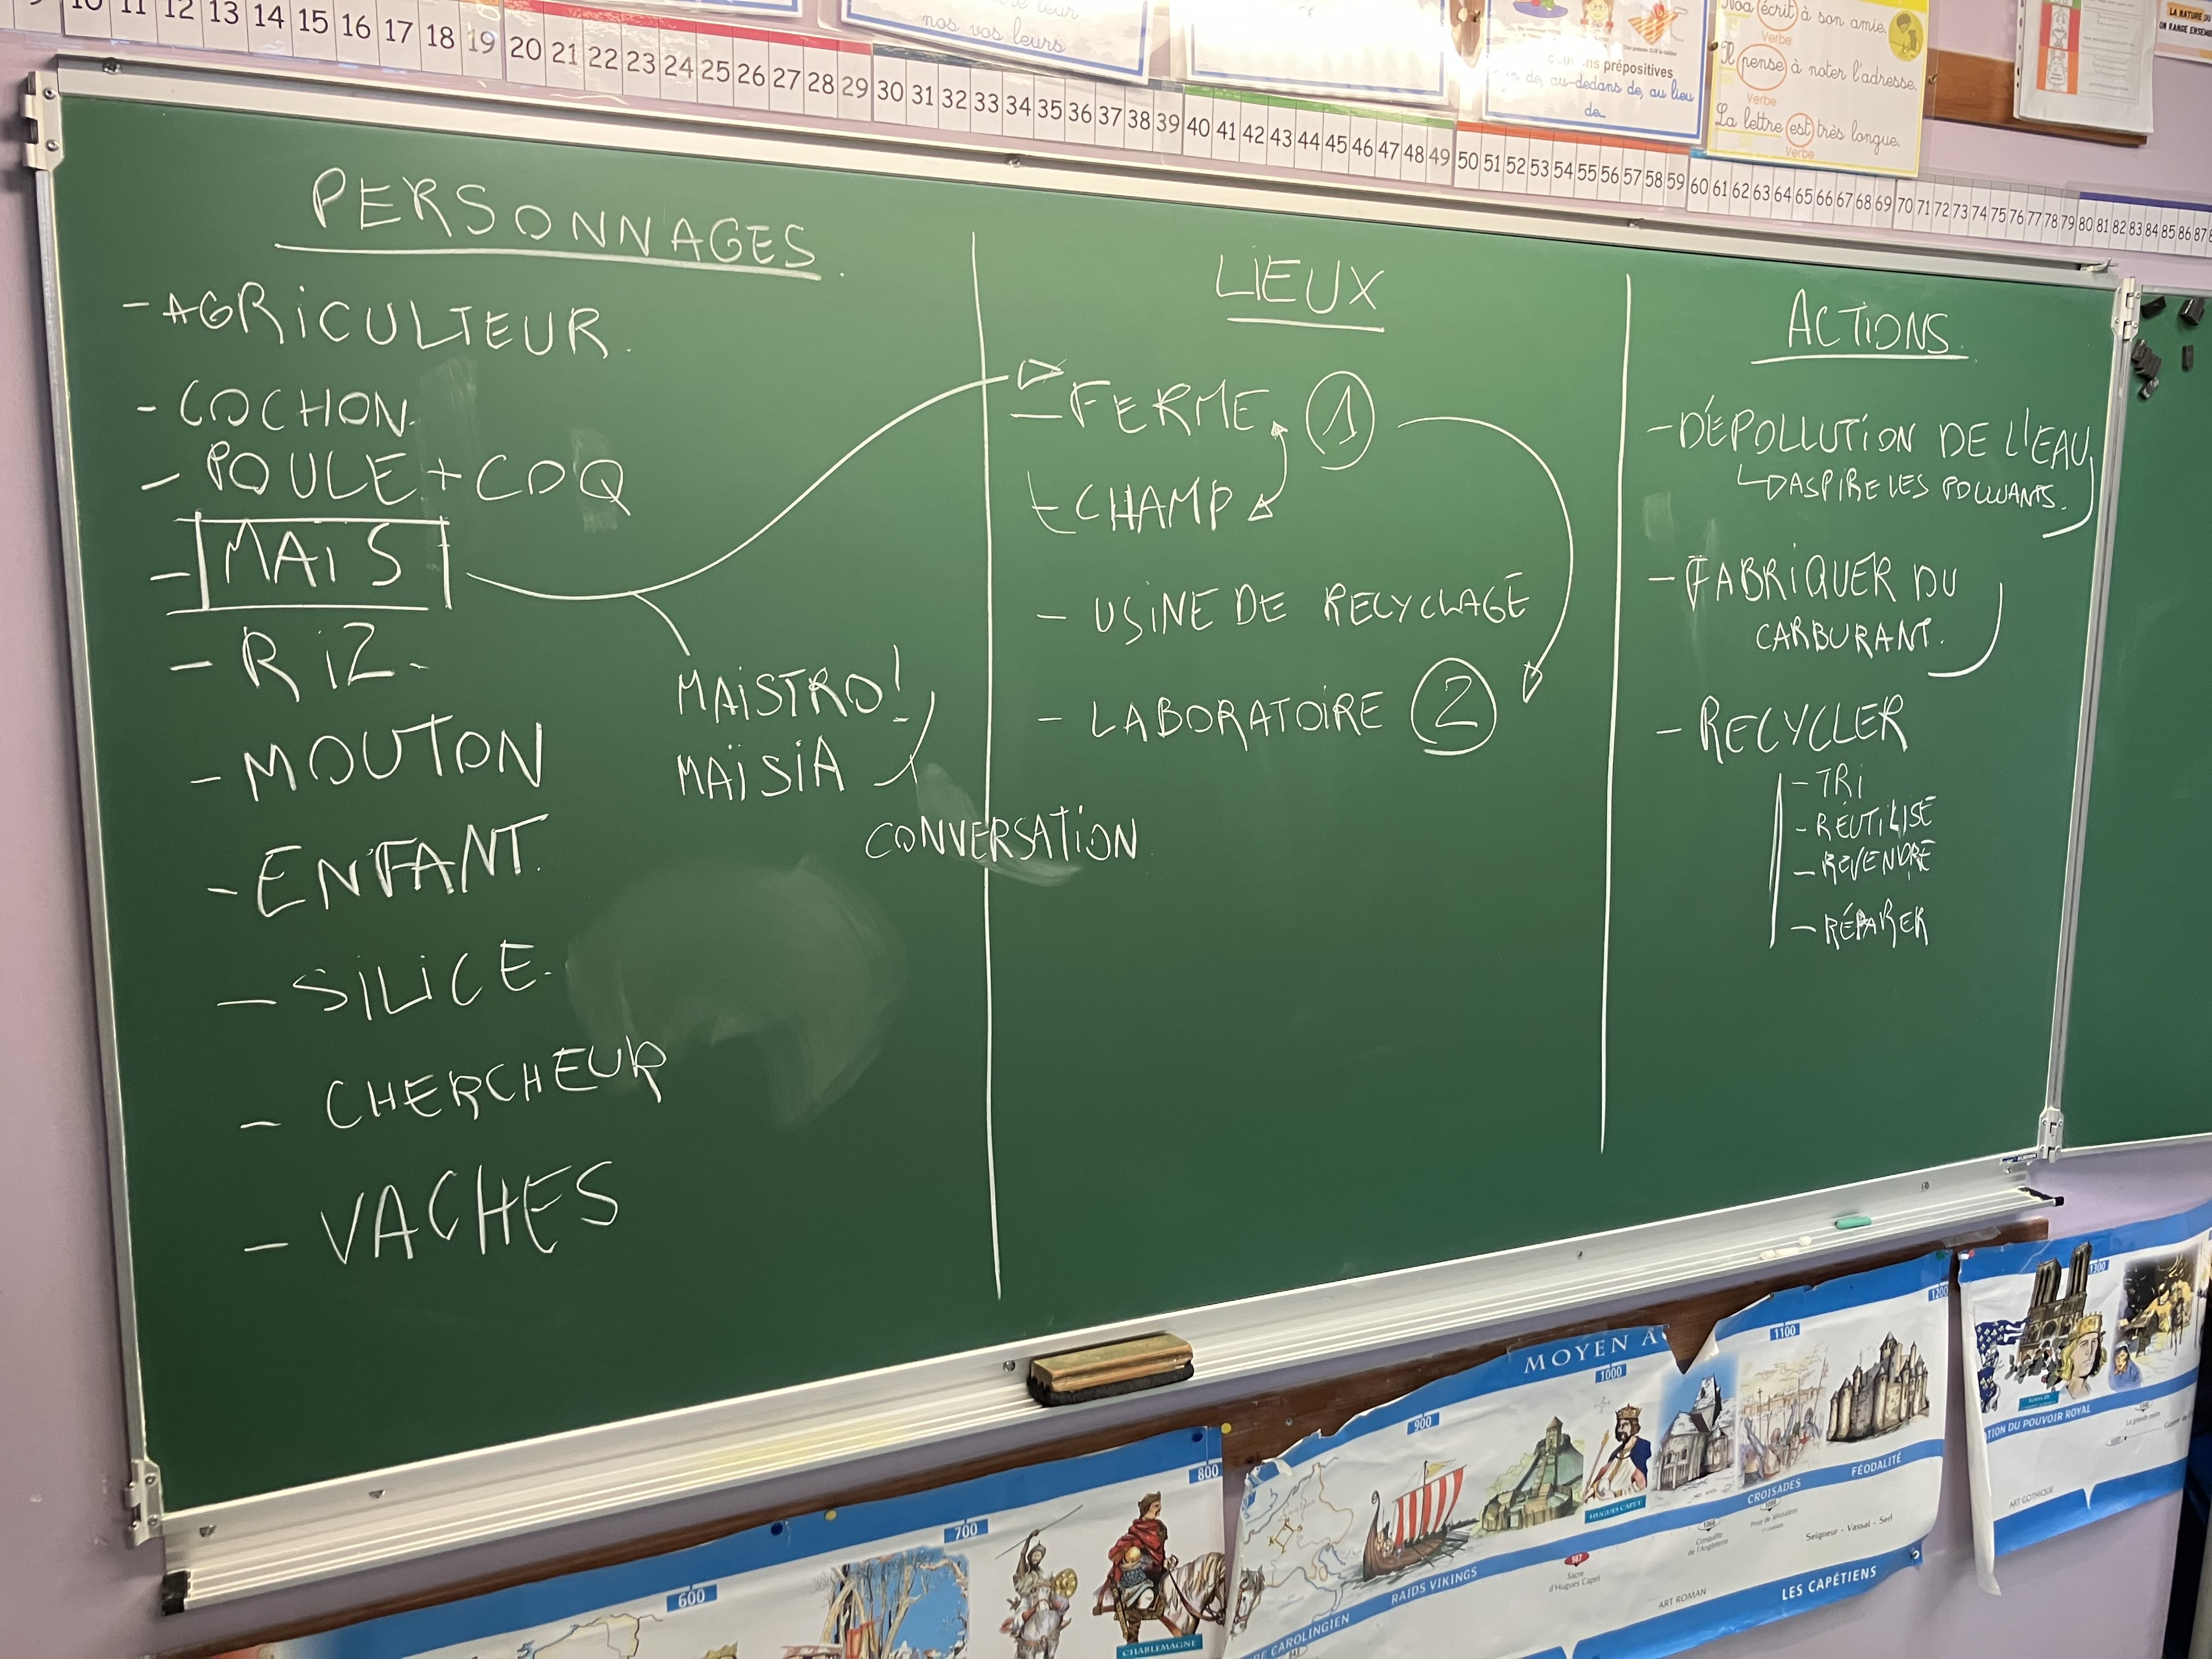 10 11 12 13 14 15 16 17 18 19 20 21 22 23 24 25 26 27 28 29 30 31 32 33 34 35 36 37 38 39 40 41 42 43 44 45 46 47 48 49 50 51 52 53 54 55 56 57 58 59 60 61 62 63 64 65 66 67 68 69 70 71 72 73 74 75 76 77 78 79 80 81 82 83 84 85 86 87
leur
nos vos leurs
prépositives
de, au-dedans de, au lieu
de...
Noa écrit à son amie.
Verbe
Il pense à noter l'adresse.
Verbe
La lettre est très longue.
Verbe
LA NATURE
ON RANGE
PERSONNAGES.
- AGRICULTEUR.
- COCHON.
- POULE + COQ
- MAIS
- RIZ.
- MOUTON
- ENFANT.
- SILICE.
- CHERCHEUR
- VACHES
MAISTRO!
MAÏSIA
CONVERSATION
LIEUX
- FERME 1
- CHAMP
- USINE DE RECYCLAGE
- LABORATOIRE 2
ACTIONS.
- DÉPOLLUTION DE L'EAU
ASPIRE LES POLLUANTS.
- FABRIQUER DU
CARBURANT.
- RECYCLER
- TRI
- RÉUTILISE
- REVENDRE
- RÉPARER
MOYEN
600
700
800
900
1000
1100
1200
1300
CHARLEMAGNE
CAROLINGIEN
RAIDS VIKINGS
987
Sacre
d'Hugues Capet
HUGUES CAPET
ART ROMAN
Conquête
de l'Angleterre
Prise de Jérusalem
CROISADES
FÉODALITÉ
Seigneur - Vassal - Serf
LES CAPÉTIENS
TION DU POUVOIR ROYAL
ART GOTHIQUE